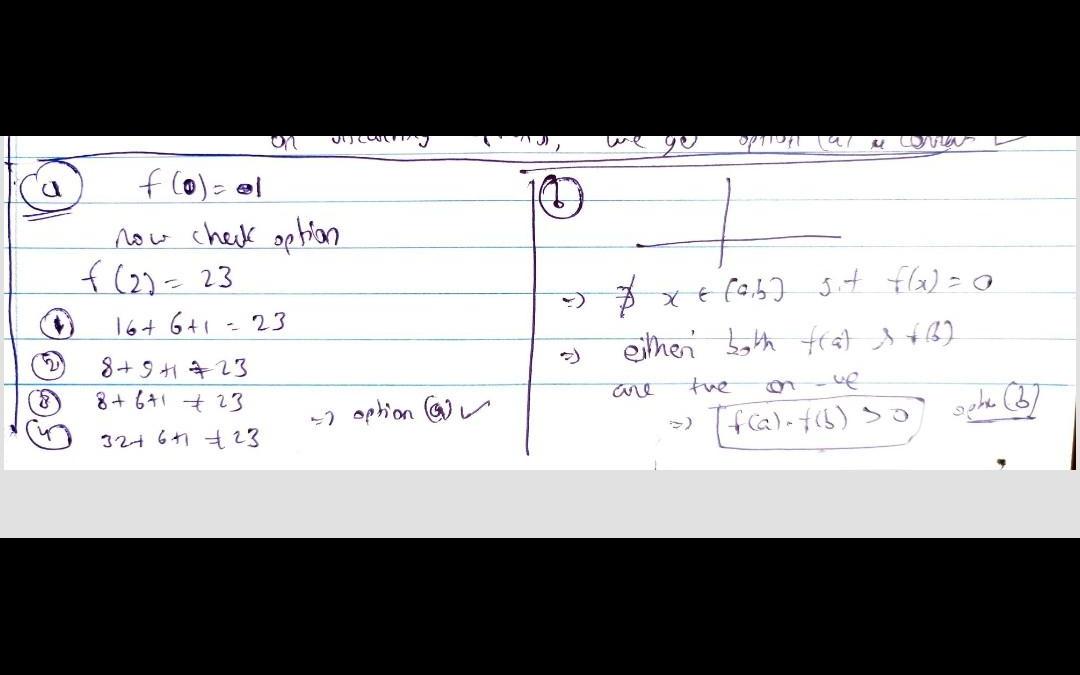 we go option (a) is correct
(a) f(0) = 1
now check option
f(2) = 23
(1) 16+6+1 = 23
(2) 8+9+1 ≠ 23
(3) 8+6+1 ≠ 23
(4) 32+6+1 ≠ 23
=) option (a) ✓
(b)
=) ∄ x ∈ [a,b] s.t f(x) = 0
=) either both f(a) & f(b)
are +ve or -ve
=) f(a).f(b) > 0 option (b)